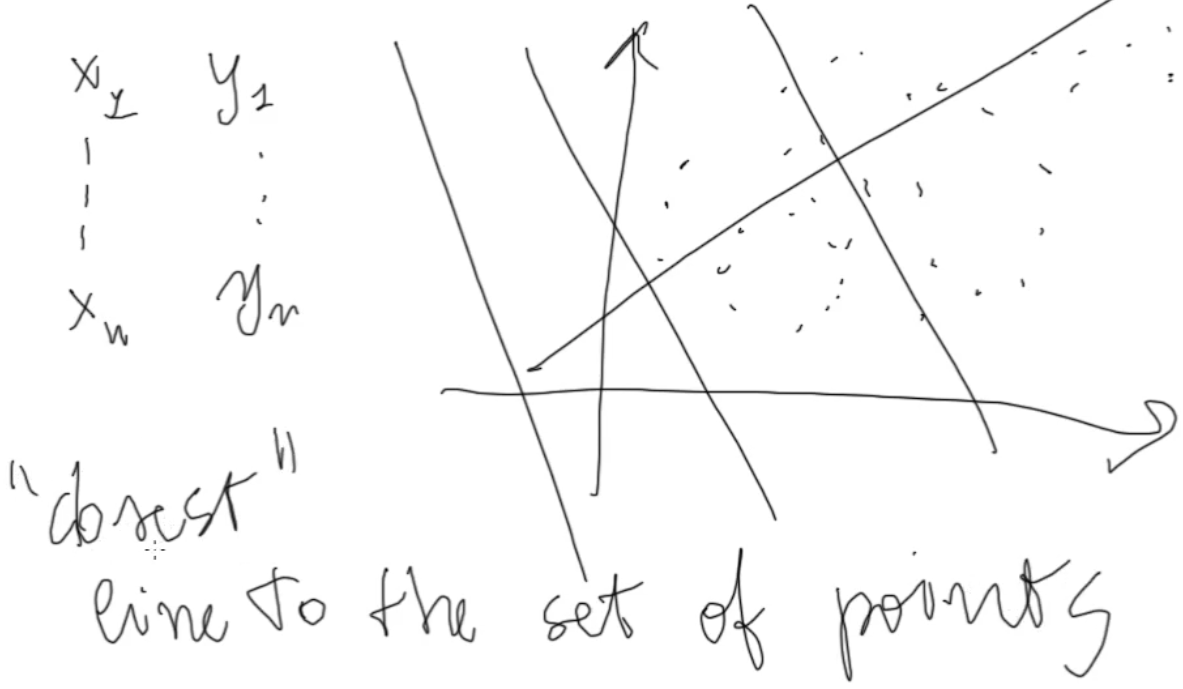 x₁ y₁
xₙ yₙ
"closest"
line to the set of points